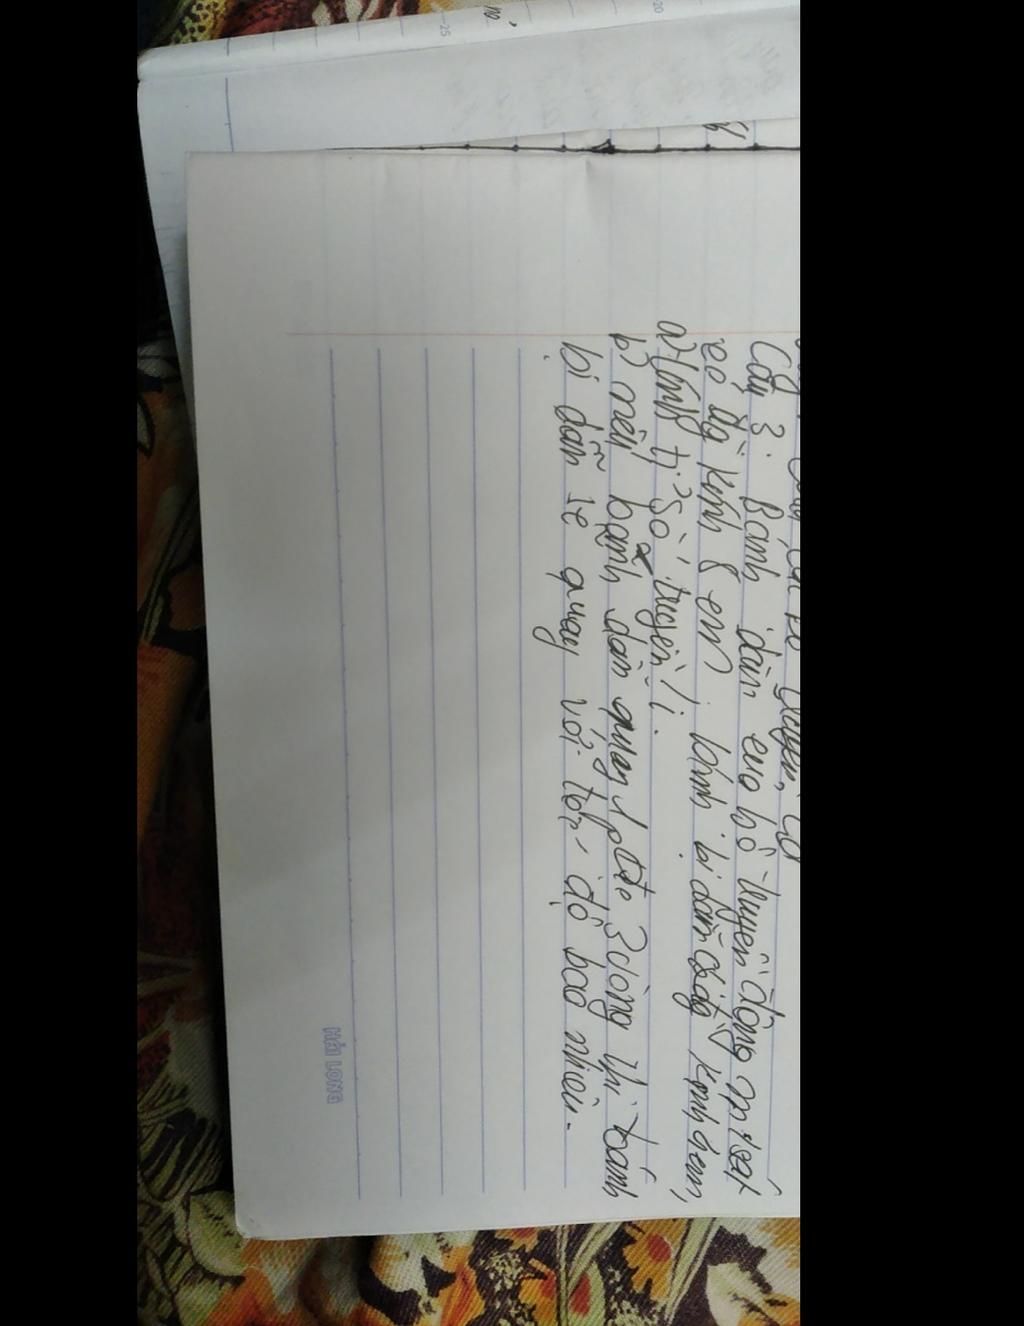 Câu 3. Bánh dẫn của bộ truyền động ma sát
có đg kính 8 cm bánh bị dẫn có đg kính cm,
a) tính tỉ số truyền i.
b) nếu bánh dẫn quay 1 phút 3 vòng thì bánh
bị dẫn sẽ quay với tốc độ bao nhiêu.
HẢI LONG